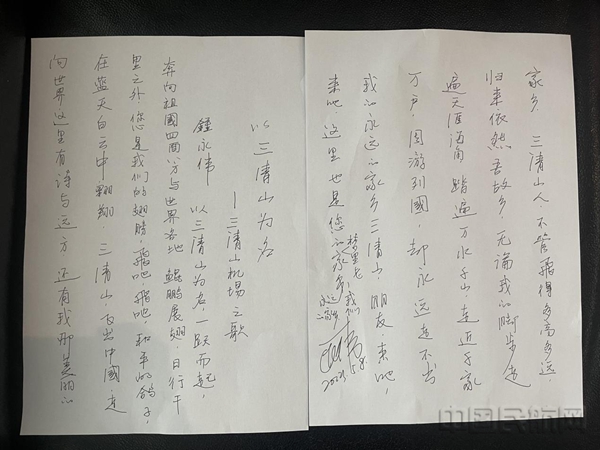 以三清山为名
—三清山机场之歌
锺永伟 以三清山为名,一跃而起,
奔向祖國四面八方与世界各地 鲲鹏展翅,日行千
里之外,您是我们的翅膀,飛吧,飛吧,和平的鸽子,
在蓝天白云中翱翔. 三清山,走出中國,走
向世界,这里有诗与远方 还有我那美丽的
家乡 三清山人 不管飛得多高多远,
归来依然吾故乡,无论我的脚步走
遍天涯海角 踏遍万水千山,走近千家
万户,周游列國,却永远走不出
我的永远的家乡三清山 朋友来吧,
来吧,这里也是您的家乡
我们
中国民航网